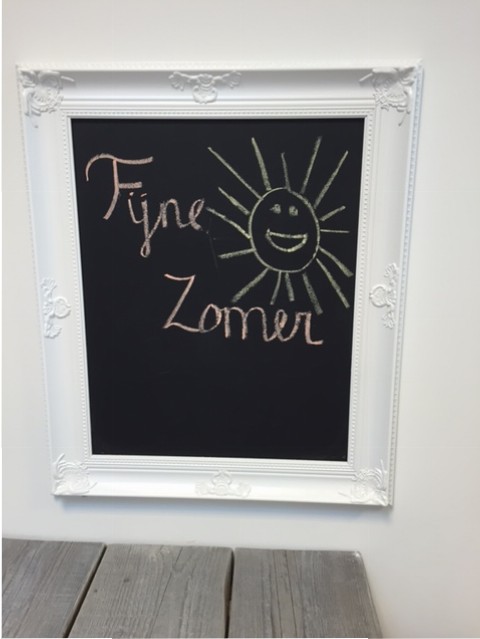 Fijne
Zomer